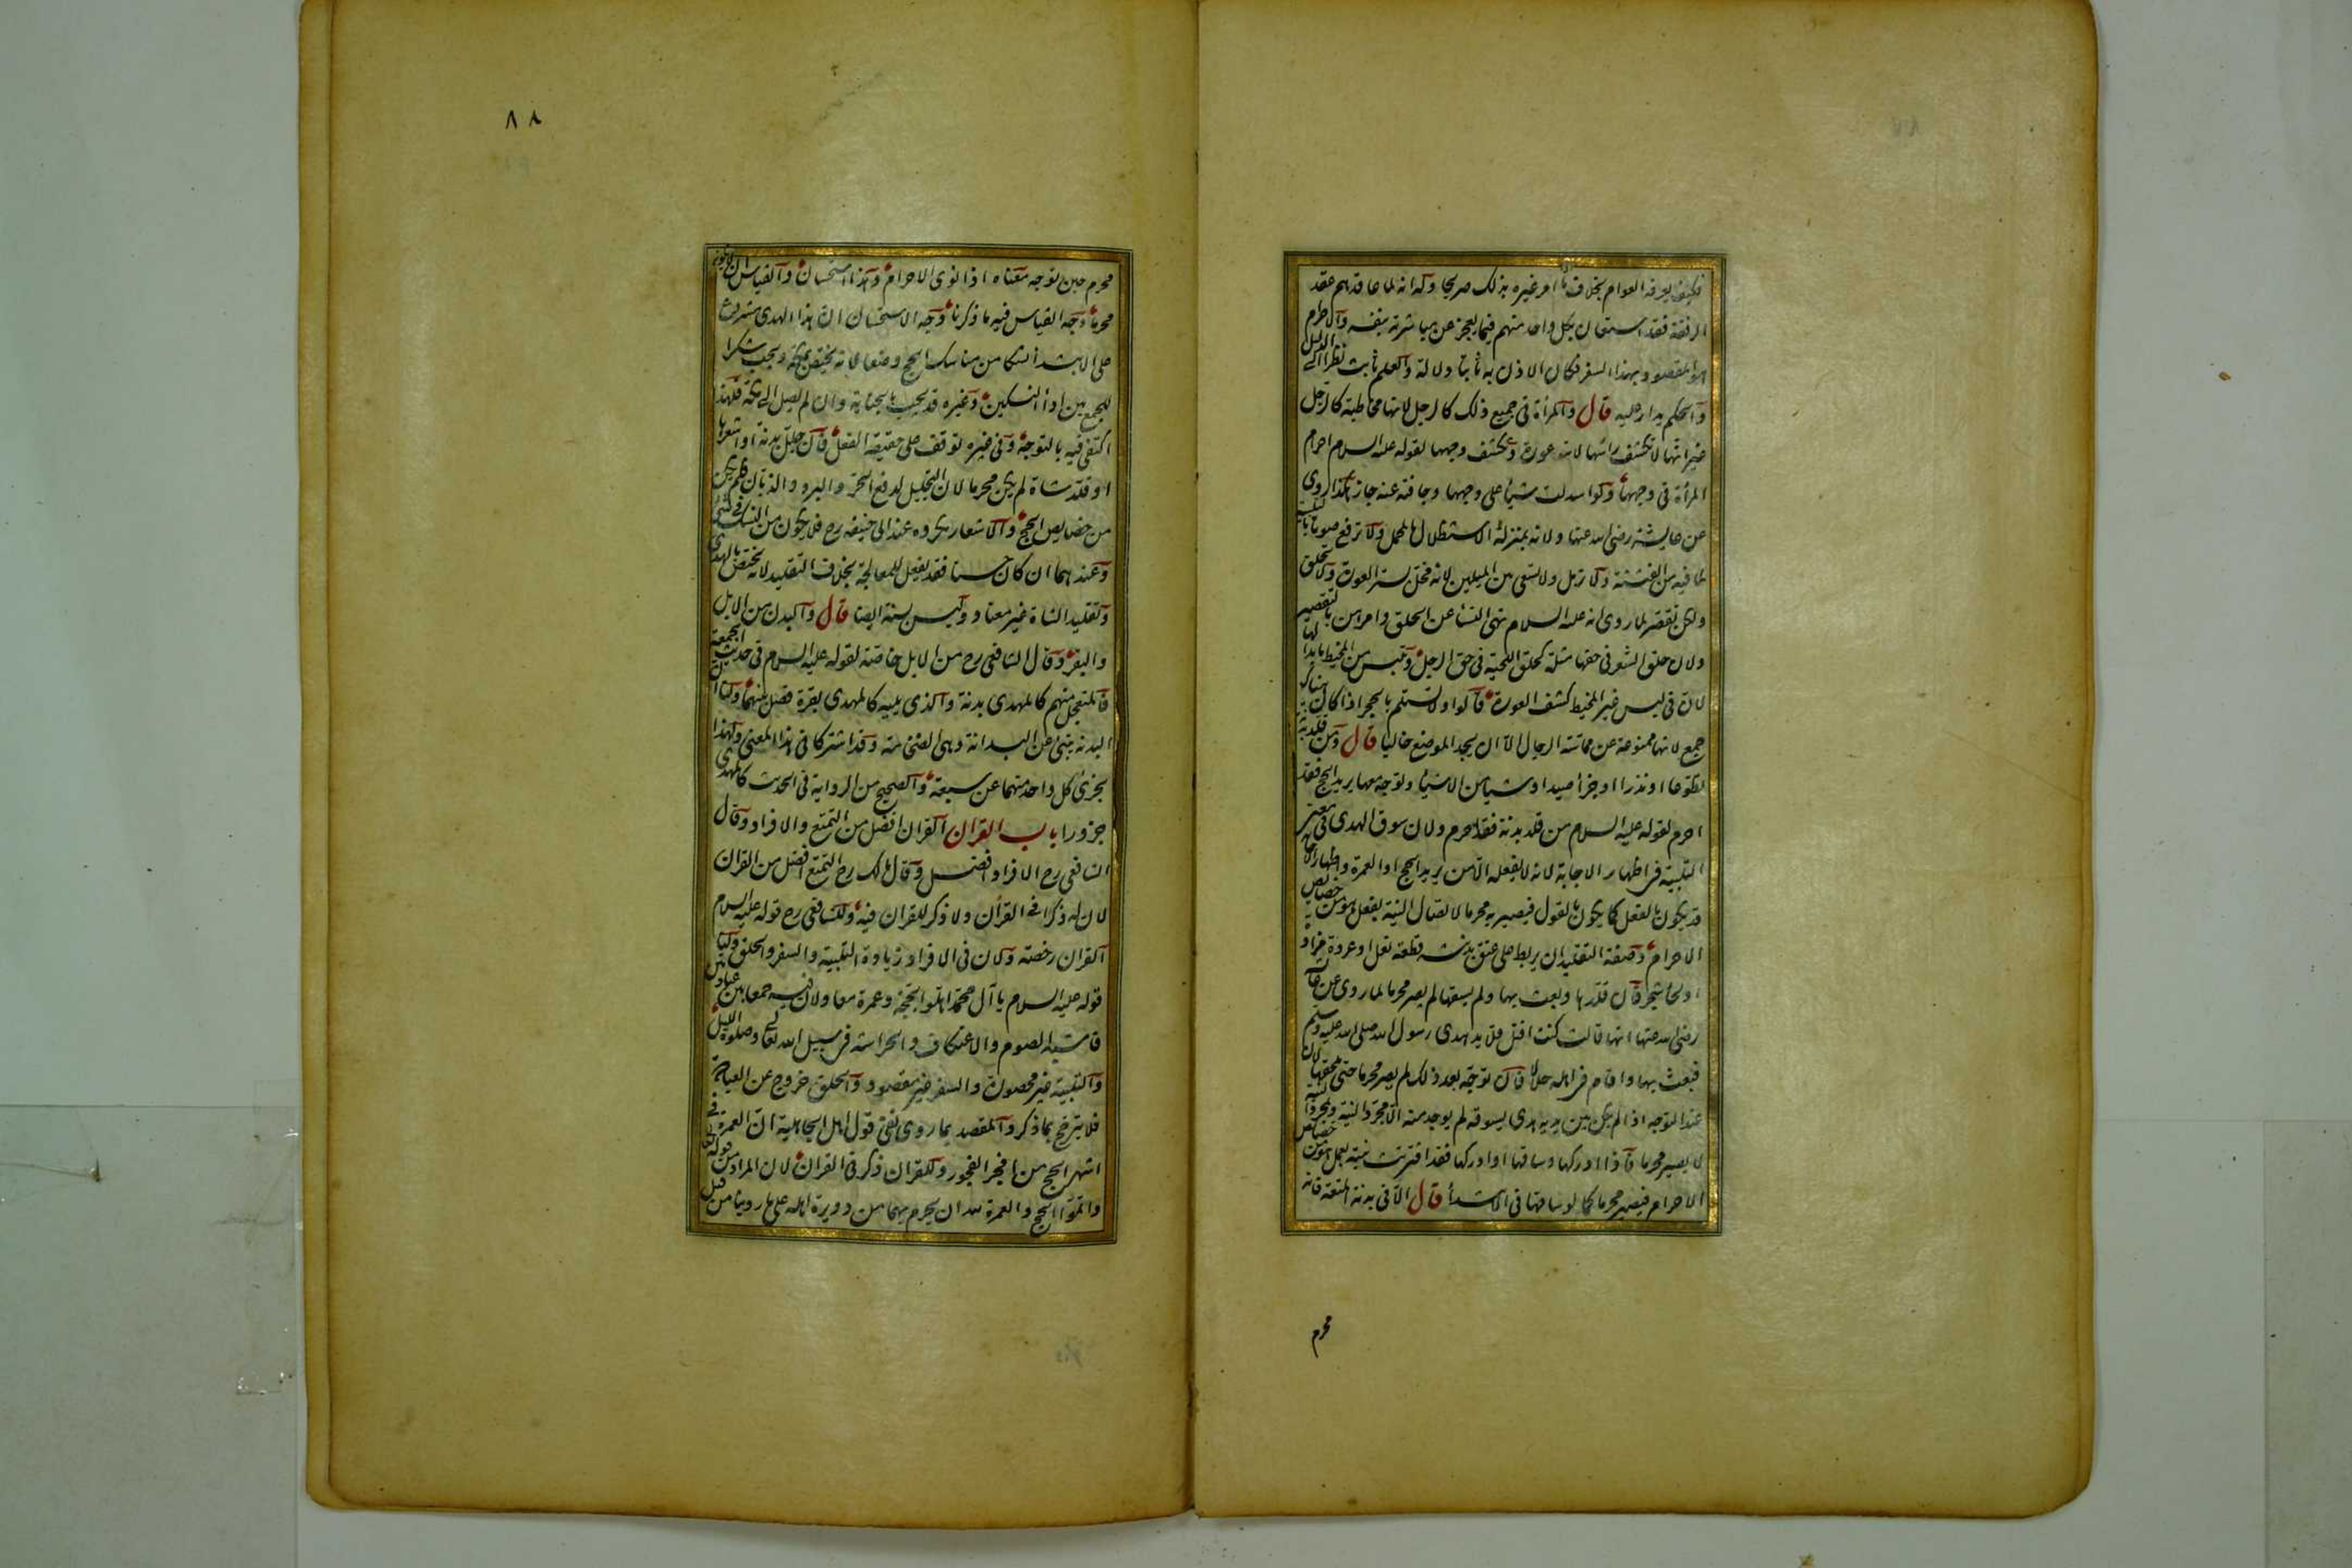 فكيف يعرفه العوام بخلاف ما امر غيره بذلك صريحا وله انه لما عاقدهم عقد
الرفقة فقد استعان بكل واحد منهم فيما يعجز عن مباشرته بنفسه والاحرام
هو المقصود بهذا السفر فكان الاذن به ثابتا دلالة والعلم ثابت نظرا الى الدليل
والحكم يدار عليه قال والمرأة فى جميع ذلك كالرجل لانها مخاطبة كالرجل
غير انها لا تكشف رأسها لانه عورة وتكشف وجهها لقوله عليه السلام احرام
المرأة فى وجهها ولو اسدلت شيئا على وجهها وجافته عنه جاز هكذا روى
عن عايشة رضى الله عنها ولانه بمنزلة الاستظلال بالمحمل ولا ترفع صوتها بالتلبية
لما فيه من الفتنة ولا ترمل ولا تسعى بين الميلين لانه مخل بستر العورة ولا تحلق
ولكن تقصر لما روى انه عليه السلام نهى النساء عن الحلق وامرهن بالتقصير
ولان حلق الشعر فى حقها مثلة كحلق اللحية فى حق الرجل وتلبس من المخيط ما بدا لها
لان فى لبس غير المخيط كشف العورة قالوا ولا تستلم الحجر اذا كان هناك
جمع لانها ممنوعة عن مماسة الرجال الا ان يجد الموضع خاليا قال ومن قلد بدنة
تطوعا او نذرا او جزاء صيد او شيئا من الاشياء وتوجه معها يريد الحج فقد
احرم لقوله عليه السلام من قلد بدنة فقد احرم ولان سوق الهدى فى معنى
التلبية فى اظهار الاجابة لانه لا يفعله الا من يريد الحج او العمرة واظهار الاجابة
قد يكون بالفعل كما يكون بالقول فيصير به محرما لاتصال النية بفعل هو من خصايص
الاحرام وصفة التقليد ان يربط على عنق بدنته قطعة نعل او عروة مزادة
او لحاء شجر فان قلدها وبعث بها ولم يسقها لم يصر محرما لما روى عن عائشة
رضى الله عنها انها قالت كنت افتل قلايد هدى رسول الله صلى الله عليه وسلم
فبعث بها واقام فى اهله حلالا فان توجه بعد ذلك لم يصر محرما حتى يلحقها لان
عند التوجه اذا لم يكن بين يديه هدى يسوقه لم يوجد منه الا مجرد النية وبمجرد النية
لا يصير محرما فاذا ادركها وساقها او ادركها فقد اقترنت نيته بعمل هو من خصائص
الاحرام فيصير محرما كما لو ساقها فى الابتداء قال الا فى بدنة المتعة فانه
محرم
٨٨
محرم حين توجه معناه اذا نوى الاحرام وهذا استحسان والقياس ان لا يكون
محرما وجه القياس فيه ما ذكرنا وجه الاستحسان ان هذا الهدى مشروع
على الابتداء نسكا من مناسك الحج وضعا لانه يختص بمكة ويجب شكرا
للجمع بين اداء النسكين وغيره قد يجب بالجناية وان لم يصل الى مكة فلهذا
اكتفى فيه بالتوجه وفى غيره توقف على حقيقة الفعل فان جلل بدنة او اشعرها
او قلد شاة لم يكن محرما لان التجليل لدفع الحر والبرد والذبان فلم يكن
من خصايص الحج والاشعار مكروه عند ابى حنيفه رح فلا يكون من النسك فى شئ
وعندهما ان كان حسنا فقد يفعل للمعالجة بخلاف التقليد لانه يختص بالهدى
وتقليد الشاة غير معتاد وليس سنة ايضا قال والبدن من الابل
والبقر وقال الشافعى رح من الابل خاصة لقوله عليه السلام فى حديث الجمعة
فالمتعجل منهم كالمهدى بدنة والذى يليه كالمهدى بقرة فصل بينهما ولنا ان
البدنة تنبئ عن البدانة وهى الضخامة وقد اشتركا فى هذا المعنى ولهذا
يجزئ كل واحد منهما عن سبعة والصحيح من الرواية فى الحديث كالمهدى
جزورا باب القران القران افضل من التمتع والافراد وقال
الشافعى رح الافراد افضل وقال مالك رح التمتع افضل من القران
لان له ذكرا فى القرآن ولا ذكر للقران فيه وللشافعى رح قوله عليه السلام
القران رخصة ولان فى الافراد زيادة التلبية والسفر والحلق ولنا
قوله عليه السلام يا آل محمد اهلوا بحجة وعمرة معا ولان فيه جمعا بين عبادتين
فاشبه الصوم والاعتكاف والحراسة فى سبيل الله تعالى وصلوة الليل
والتلبية غير محصورة والسفر غير مقصود والحلق خروج عن العبادة
فلا يترجح بما ذكر والمقصد بما روى نفى قول اهل الجاهلية ان العمرة فى
اشهر الحج من افجر الفجور وللقران ذكر فى القران لان المراد من قوله تعالى
واتموا الحج والعمرة لله ان يحرم بهما من دويرة اهله على ما روينا من قبل